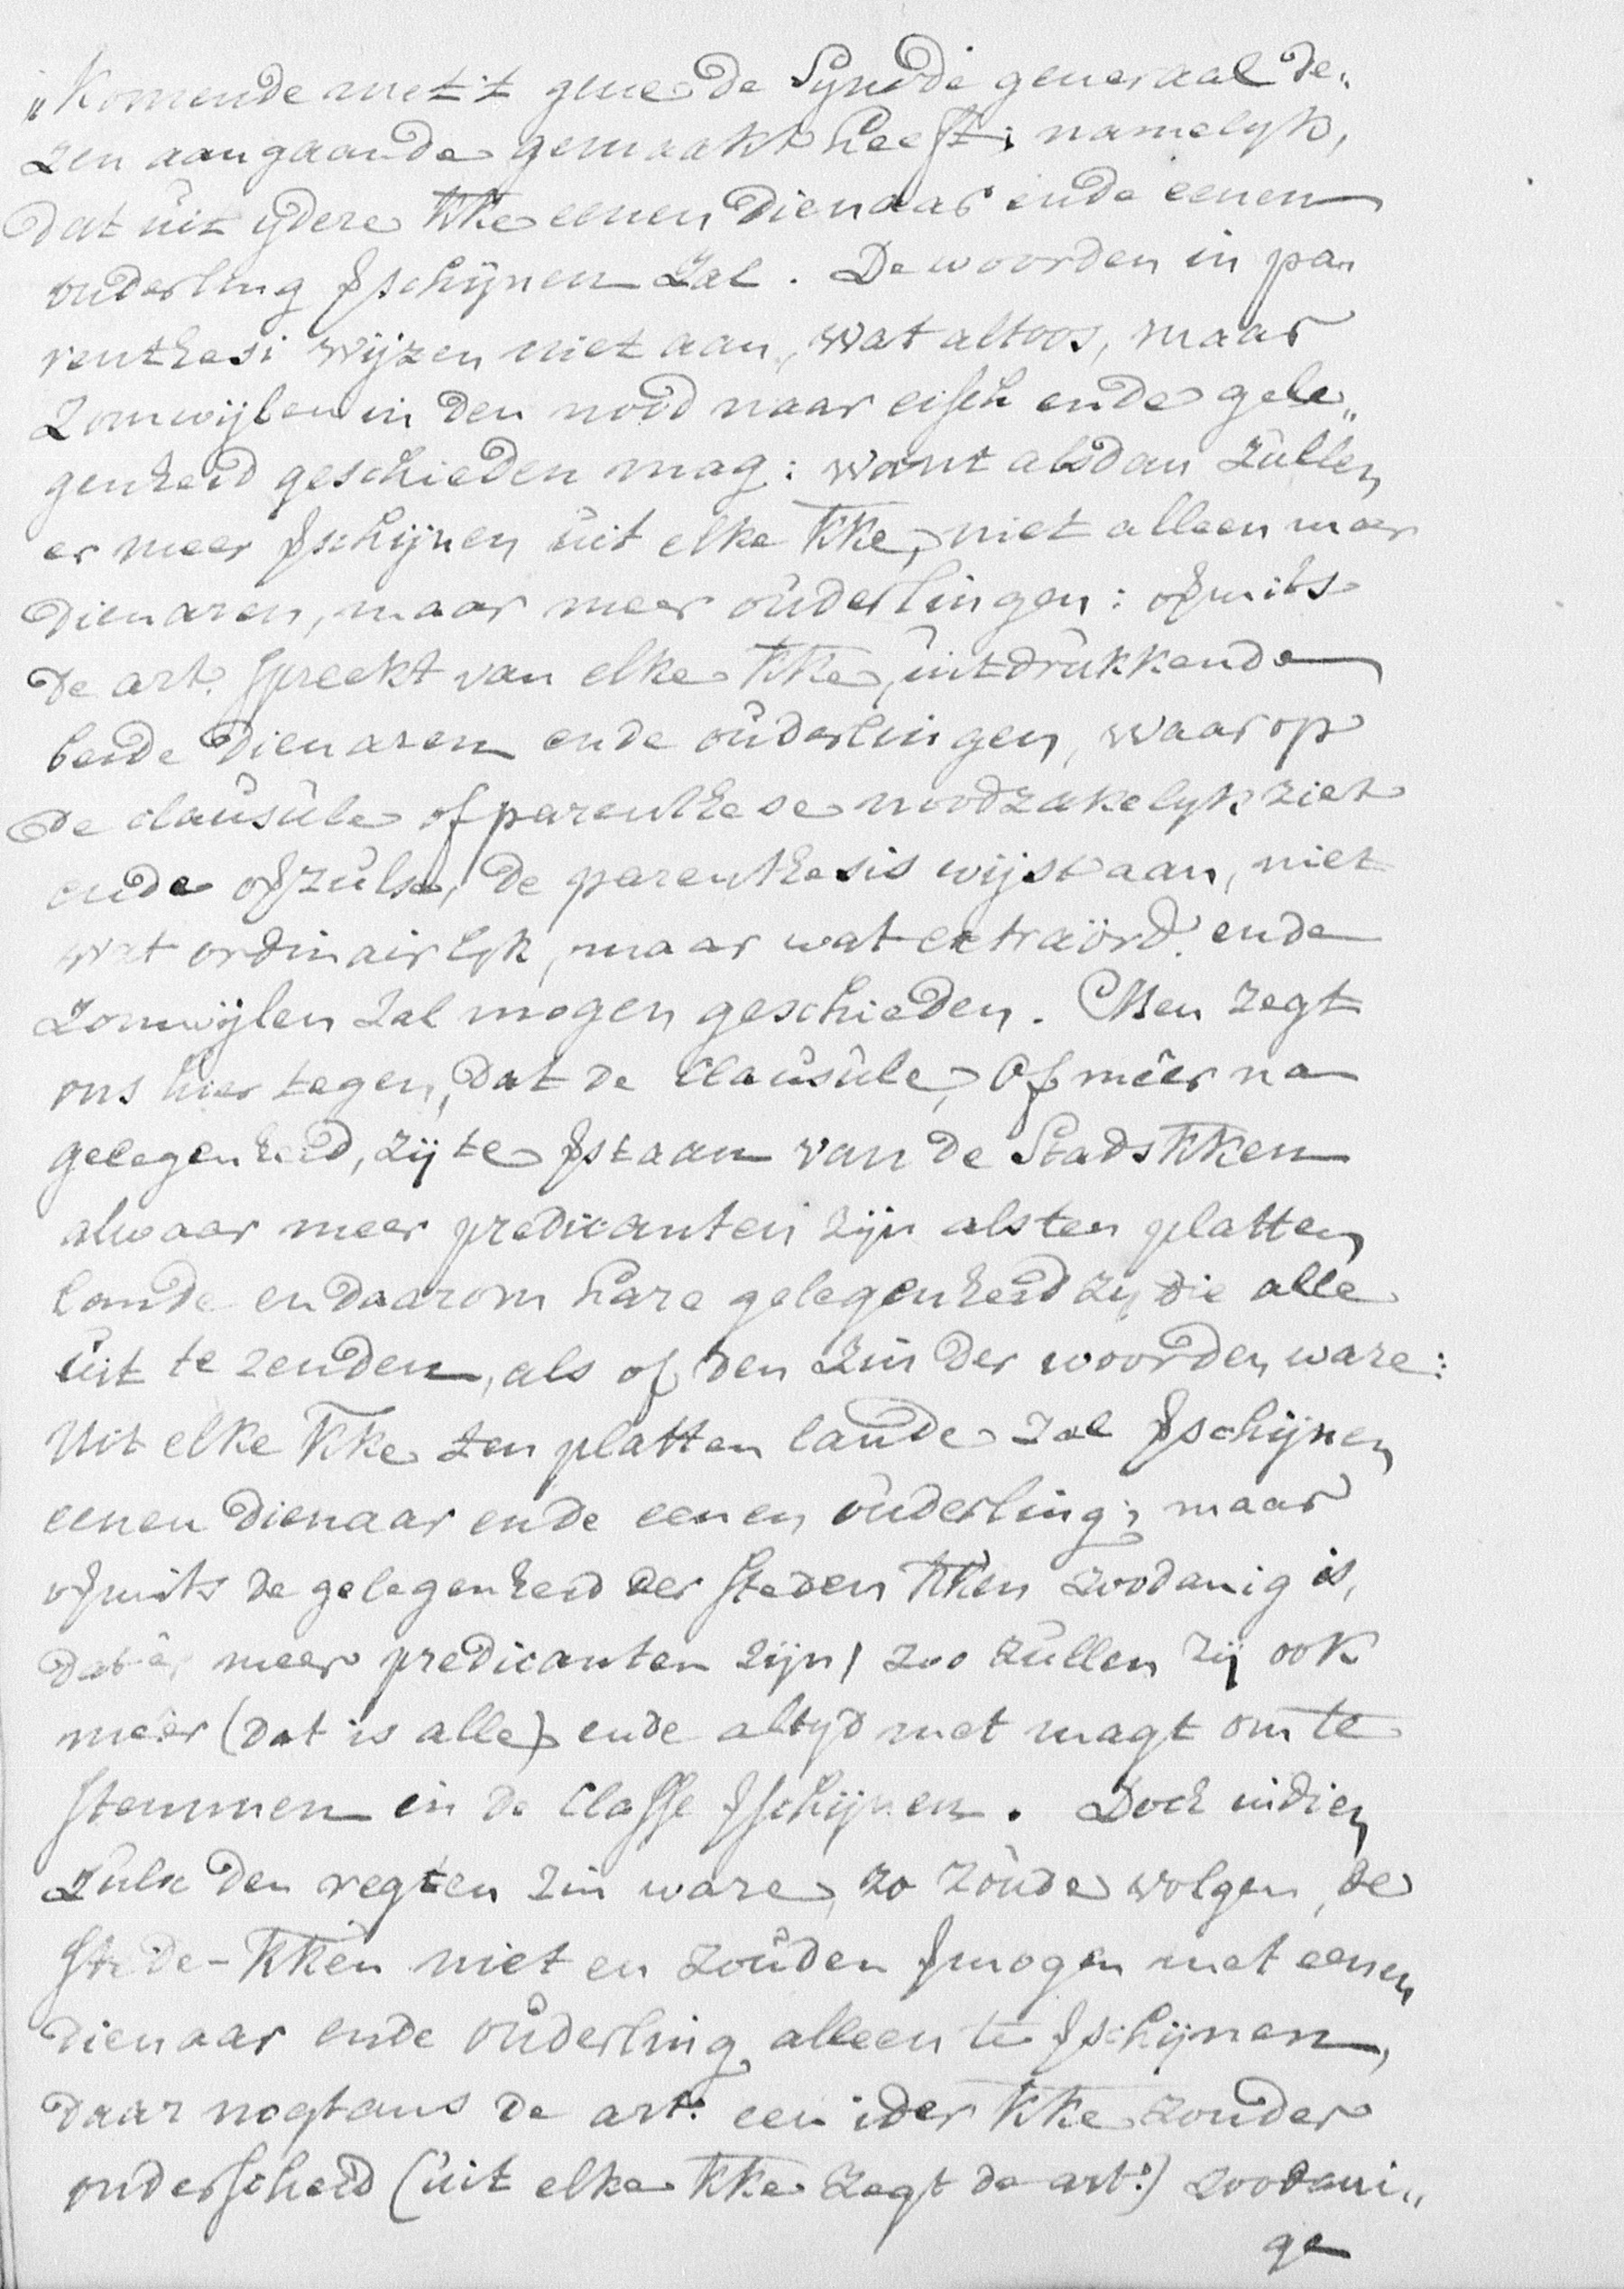 „Komende met 't gene de Synode generaal de„
zen aangaande gemaakt heeft; namelyk,
dat uit ydere kke eenen dienaar ende eenen
ouderling ꝟschijnen zal. De woorden in pa„
renthesi wijzen niet aan, wat altoos, maar
zomwijlen in den nood naar eisch ende gele„
genheid geschieden mag: want alsdan zullen
er meer ꝟschijnen uit elke kke, niet alleen meer
dienaren, maar meer ouderlingen: oꝟmits
de art. spreekt van elke kke, uitdrukkende
beide dienaren ende ouderlingen, waarop
de clausule of parenthese noodzakelyk ziet
ende oꝟzulx, de parenthesis wijst aan, niet
wat ordinairlyk, maar wat extraörd. ende
zomwijlen zal mogen geschieden. Men zegt
ons hier tegen, dat de clausule, Of méér na
gelegenheid, zij te ꝟstaan van de Stads kken
alwaar meer predicanten zijn als ten platten
lande en daarom hare gelegenheid zij die alle
uit te zenden, als of den zin der woorden ware:
Uit elke kke ten platten lande zal ꝟschijnen
eenen dienaar ende eenen ouderling; maar
oꝟmits de gelegenheid der steden kken zoodanig is,
dat er meer predicanten zijn, zoo zullen zij ook
méér (dat is alle) ende altyd met magt om te
stemmen in de Classe ꝟschijnen. Doch indien
zulx den regten zin ware, zo zoude volgen, de
stede-kken niet en zouden ꝟmogen met eenen
dienaar ende ouderling alleen te ꝟschijnen,
daar nogtans de art: een ider kke zonder
onderscheid (uit elke kke zegt de art:) zoodani„
ge